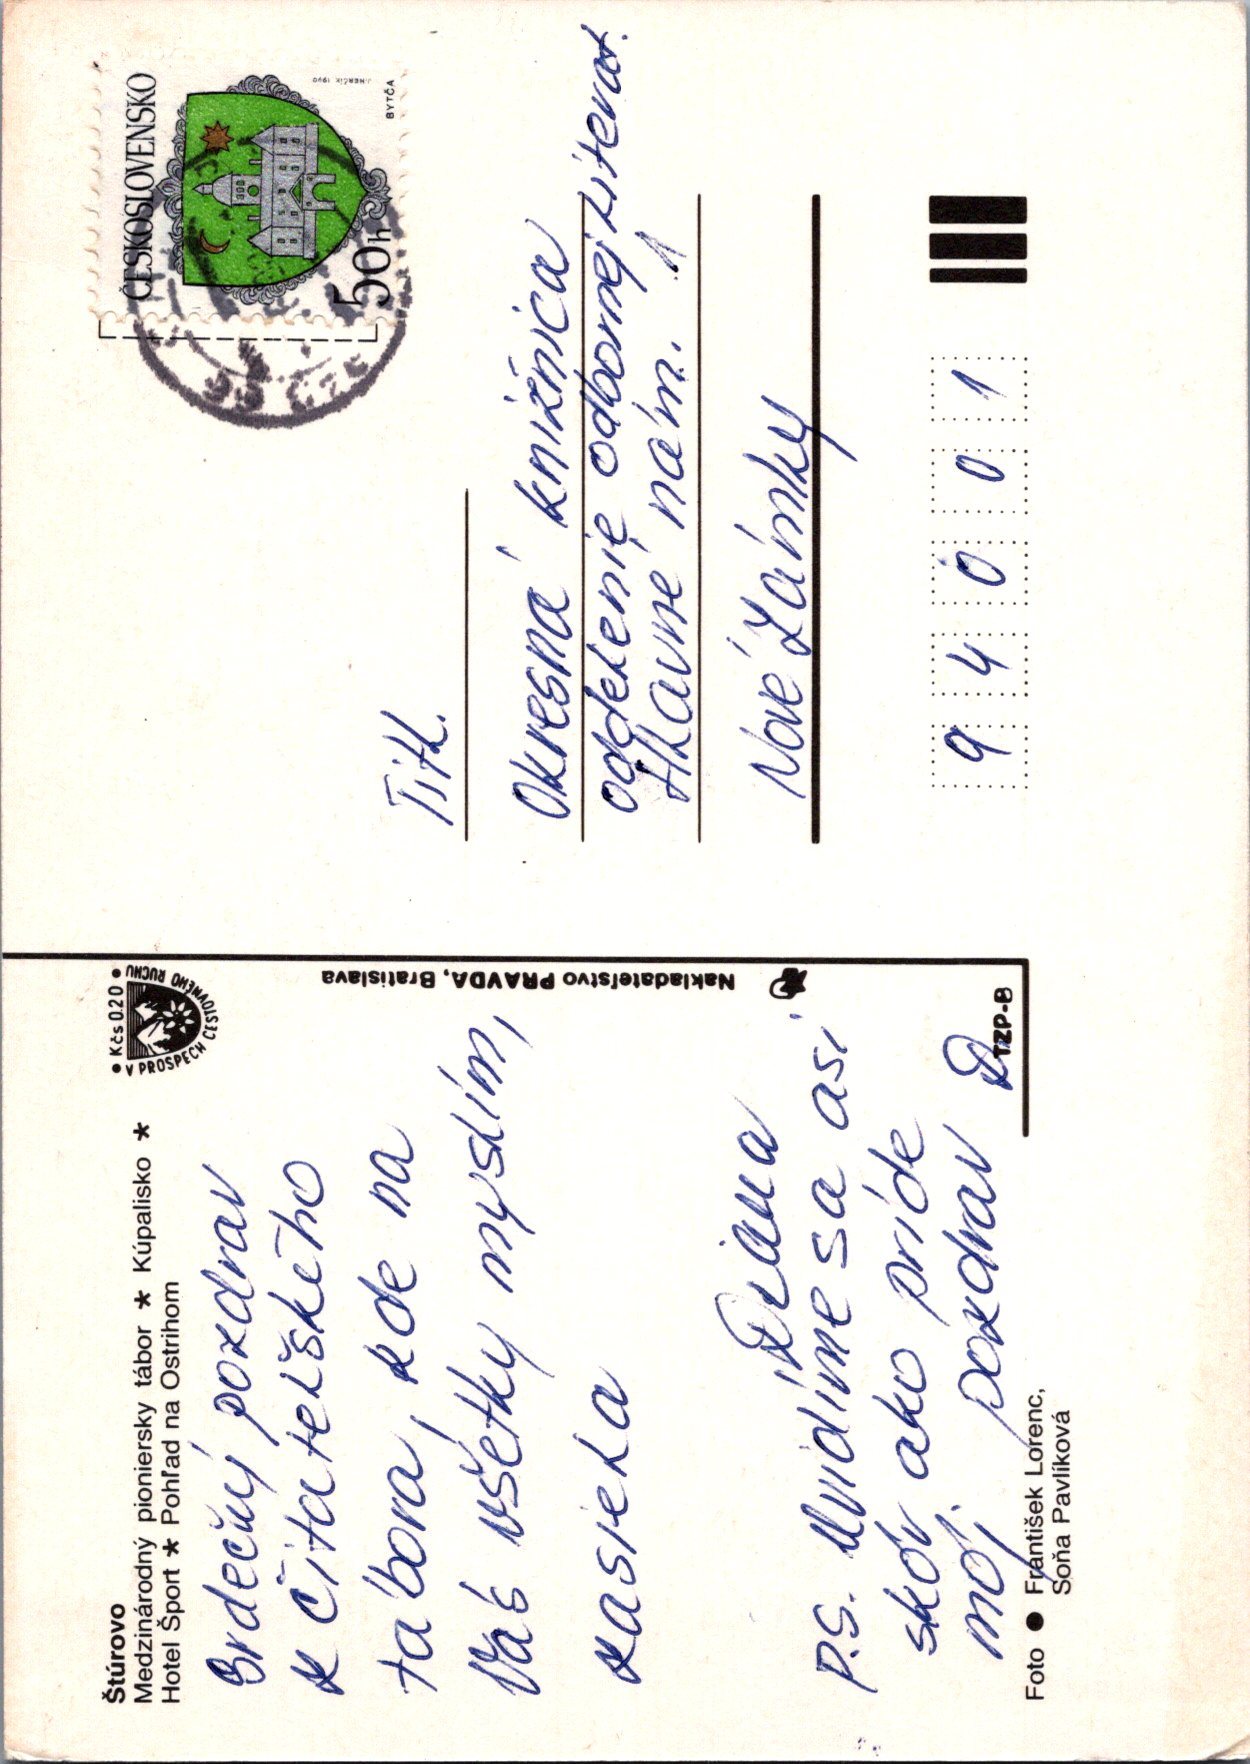 Štúrovo
Medzinárodný pioniersky tábor ★ Kúpalisko ★
Hotel Šport ★ Pohľad na Ostrihom
• Kčs 0.20 •
V PROSPECH CESTOVNÉHO RUCHU
Srdečný pozdrav
z čitateľského
tábora, kde na
Vás všetky myslím,
zasiela
Diana
P.S. Uvidíme sa asi
skôr ako príde
môj pozdrav D.
Foto ● František Lorenc,
Soňa Pavlíková
TZP-B
Nakladateľstvo PRAVDA, Bratislava
ČESKOSLOVENSKO
50h
BYTČA
J. HERČÍK 1990
Titl.
Okresná knižnica
oddelenie odbornej literat.
Hlavné nám. 1
Nové Zámky
9 4 0 0 1